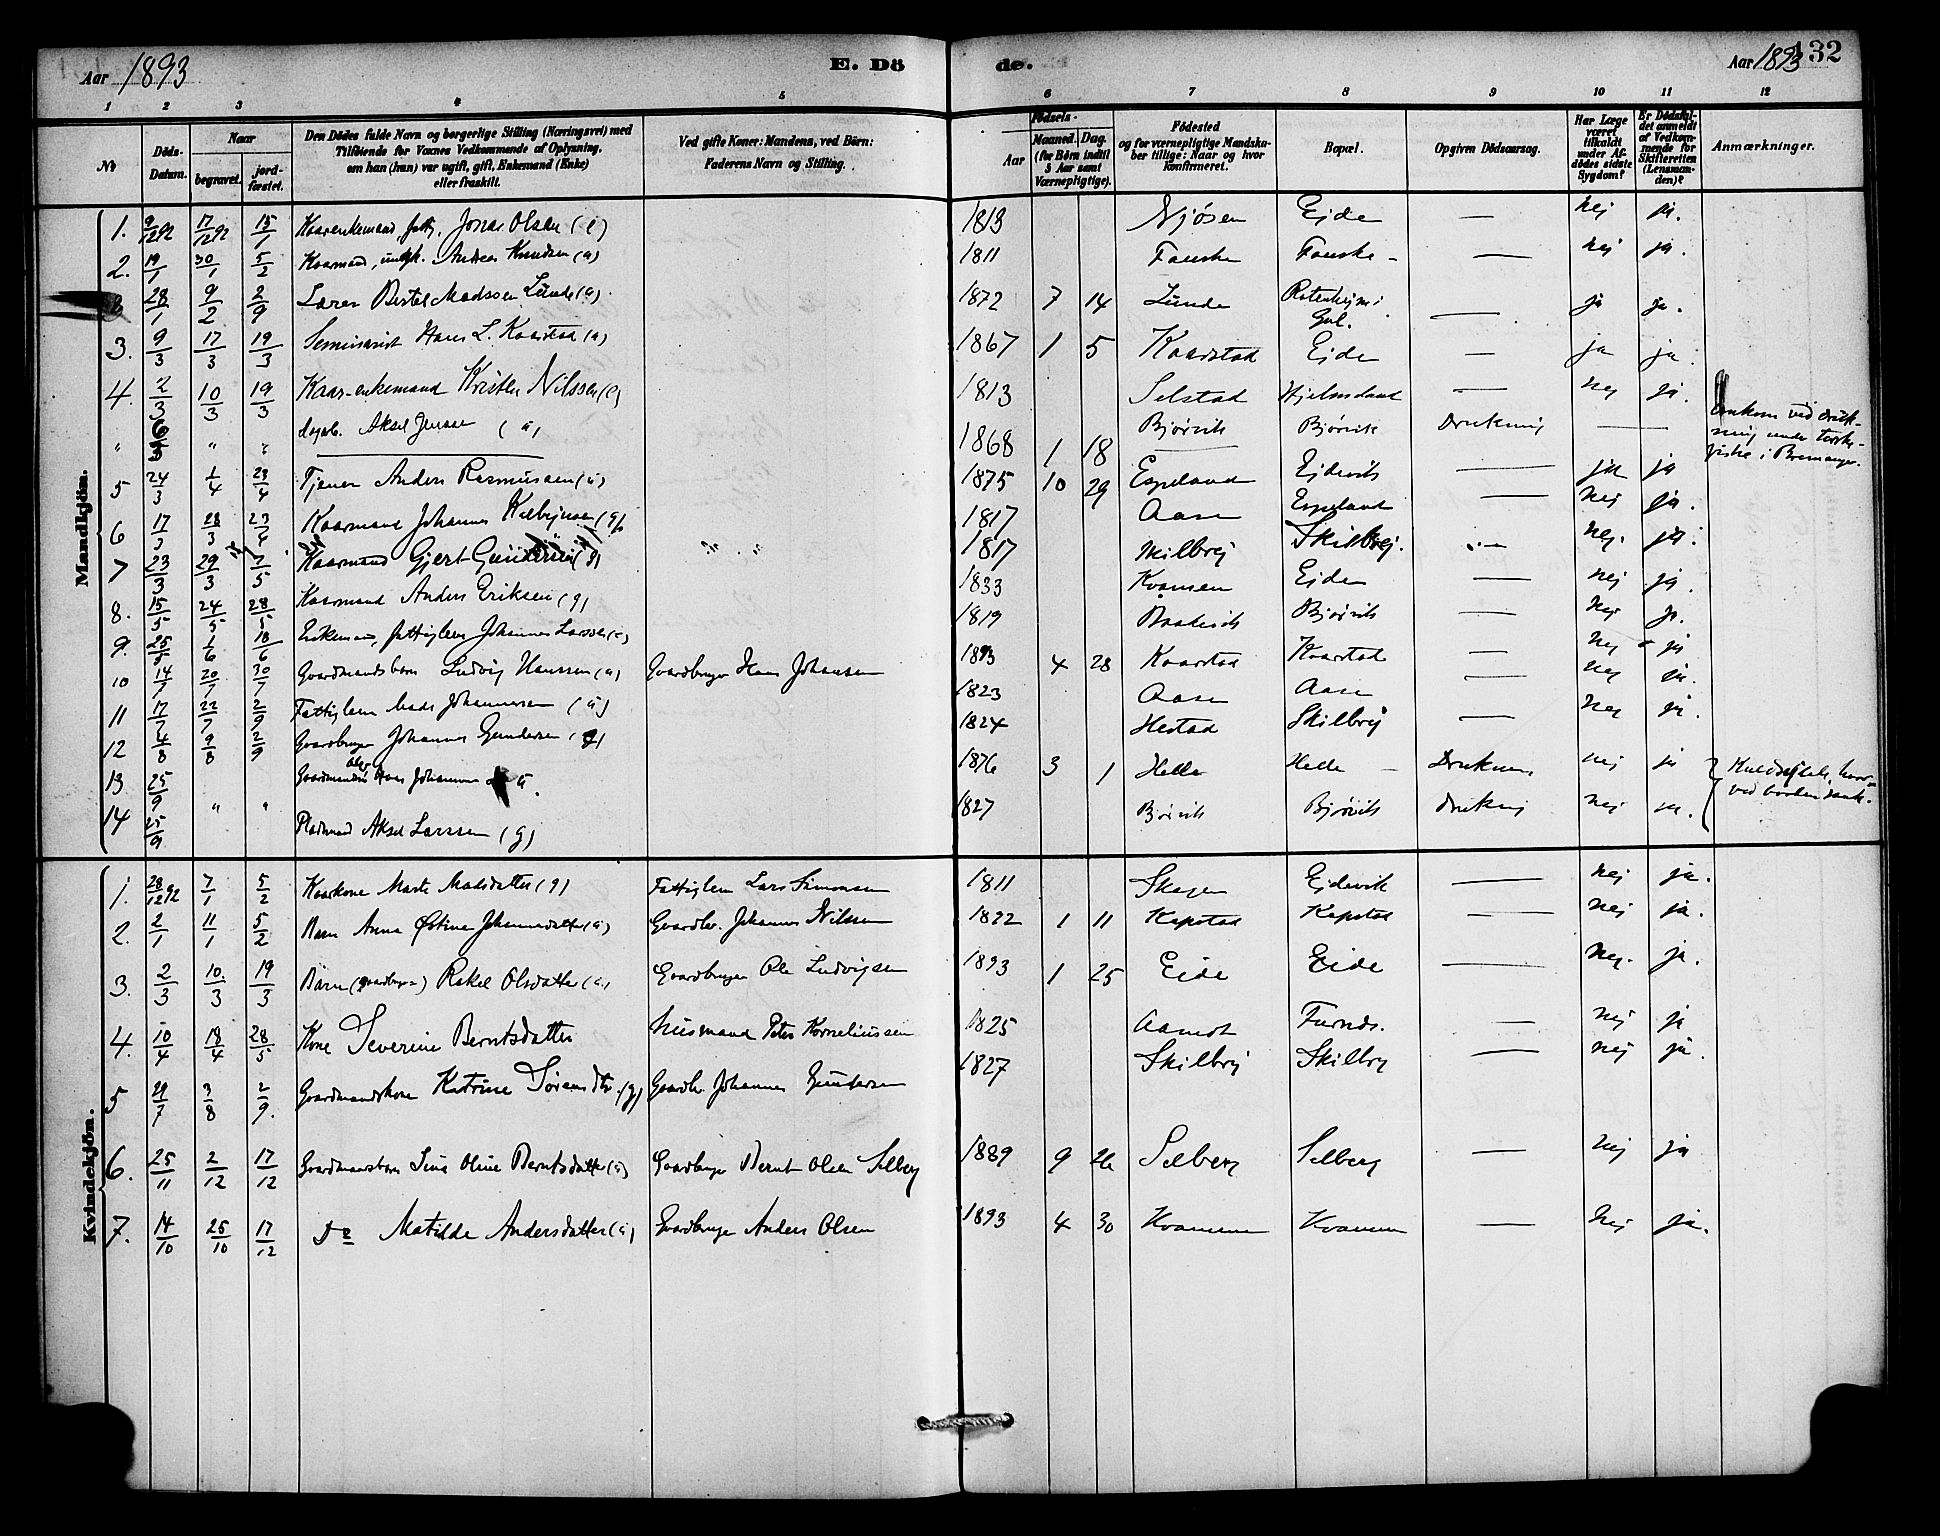 Aar 1893 E. Dö de. Aar 1893 132
1 2 3 4 5 6 7 8 9 10 11 12
№ Döds-Datum. Naar begravet. jordfæstet. Den Dödes fulde Navn og borgerlige Stilling (Næringsvei) med Tilföiende for Voxnes Vedkommende af Oplysning, om han (hun) var ugift, gift, Enkemand (Enke) eller fraskilt. Ved gifte Koner: Mandens, ved Börn: Faderens Navn og Stilling. Födsels- Aar Maaned. Dag. (for Börn indtil 5 Aar samt Værnepligtige). Födested og for værnepligtige Mandskaber tillige: Naar og hvor konfirmeret. Bopæl. Opgiven Dödsaarsag. Har Læge været tilkaldt under Afdödes sidste Sygdom? Er Dödsfaldet anmeldt af Vedkommende for Skifteretten (Lensmanden)? Anmærkninger.
Mandkjön.
1. 9/12 92 17/12 92 15/1 Kaarenkemand, fattg. Jonas Olsen (e) 1813 Njøsen Eide — nej ja.
2. 19/1 30/1 5/2 Kaarmand, Andreas Knudsen (a) 1811 Fauske Fauske — nej ja.
28/1 9/2 2/9 Lars Bertel Madssen Lunde (a) 1872 7 14 Lunde — ja ja.
3. 9/3 17/3 19/3 Seminarist Hans L. Kaarstad (a) 1867 1 5 Kaarstad Eide — ja ja.
4. 2/3 10/3 19/3 Kaar-enkemand Nilssen (e) 1813 Selstad Hjelmeland — nej ja.
" " " Aksel Jenssen (u) 1868 1 18 Bjørvik Bjørvik Drukning — — Omkom ved drukning under torskefiske i Bremanger.
5 24/3 1/4 23/4 Tjener Anders Rasmussen (u) 1875 10 29 Espeland Eidevik — ja ja
6 17/3 28/3 23/4 Kaarmand Johannes (g) 1817 Aase Espeland — nej ja.
7 23/3 29/3 7/5 Kaarmand Gjert (g) 1817 Skilbrej Skilbrej. — nej. ja.
8. 15/5 24/5 28/5 Kaarmand Anders Eriksen (g) 1833 Kvamsen Eide — nej ja.
9. 25/5 1/6 18/6 Enkemand, fattiglem Johannes Larssen (e) 1819 Bjørvik — nej ja.
10 14/7 20/7 30/7 Gaardmandsbarn Ludvig Hanssen (u) Gaardbruger Hans Johansen 1893 4 28 Kaarstad Kaarstad — nej ja
11 17/7 22/7 2/9 Fattiglem Mads Johannessen (u) 1823 Aase Aase — nej ja.
12 4/8 9/8 2/9 Gaardbruger Johannes Gundersen (g) 1824 Hestad Skilbrej — nej ja.
13 25/9 Gaardmandssøn Hans Johannessen u. 1876 3 1 Helle Helle — Druknede nej ja
14 25/9 " " Pladsmand Aksel Larssen (g) 1827 Bjørvik Bjørvik drukning nej ja. Kuldseilede, hvorved baaden sank.
Kvindekjön.
1. 28/12 92 7/1 5/2 Kaarkone Marte Madsdatter (g) Fattiglem Lars Simonsen 1811 Skagen Eidevik — nej ja.
2. 2/1 11/1 5/2 Barn Anna Østina Johannesdatter (u) Gaardbr. Johannes Nilssen 1822 1 11 Kapstad Kapstad — nej ja.
3. 2/3 10/3 19/3 Barn (gaardbrugers) Rakel Olsdatter (u) Gaardbruger Ole Ludvigsen 1893 1 25 Eide Eide — nej. ja.
4. 10/4 18/4 28/5 Kone Severine Berntsdatter Husmand Peter Korneliussen 1825 Aamot Furnds. — nej ja
5 29/7 3/8 2/9. Gaardmandskone Katrine Sørensdtr. (g) Gaardbr. Johannes Gundersen 1827 Skilbrej Skilbrej — nej ja.
6. 25/11 2/12 17/12 Gaardmansbarn Sina Oline Berntsdatter (u) Gaardbruger Bernt Olsen Selberg 1889 9 26 Selberg Selberg — nej ja
7. 14/10 25/10 17/12 do Matilde Andersdatter (u) Gaardbruger Anders Olsen 1893 4 30 Kvammen Kvammen — nej ja.